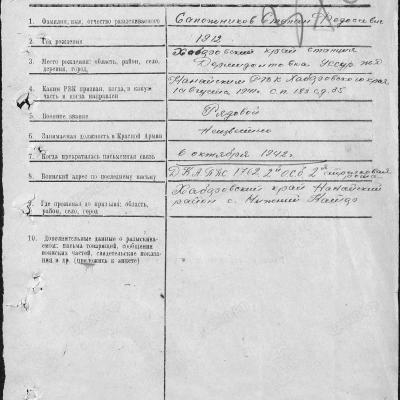 1. Фамилия, имя, отчество разыскиваемого
Сапожников Степан Федосеевич
2. Год рождения
1912
3. Место рождения: область, район, село, деревня, город
Хабаровский край станция
Дормидонтовка Уссур. ж/д
4. Каким РВК призван, когда, в какую часть и когда направлен
Нанайским РВК Хабаровского края
1 августа
5. Военное звание
Рядовой
6. Занимаемая должность в Красной Армии
Неизвестно
7. Когда прекратилась письменная связь
в октябре 1942 г.
8. Воинский адрес по последнему письму
ДКА ППС 1762 2й ОСБ 2я стрелковая
рота
9. Где проживал до призыва: область, район, село, город
Хабаровский край Нанайский
район с. Нижний
10. Дополнительные данные о разыскиваемом: письма товарищей, сообщения воинских частей, свидетельские показания и др. (приложить к анкете)